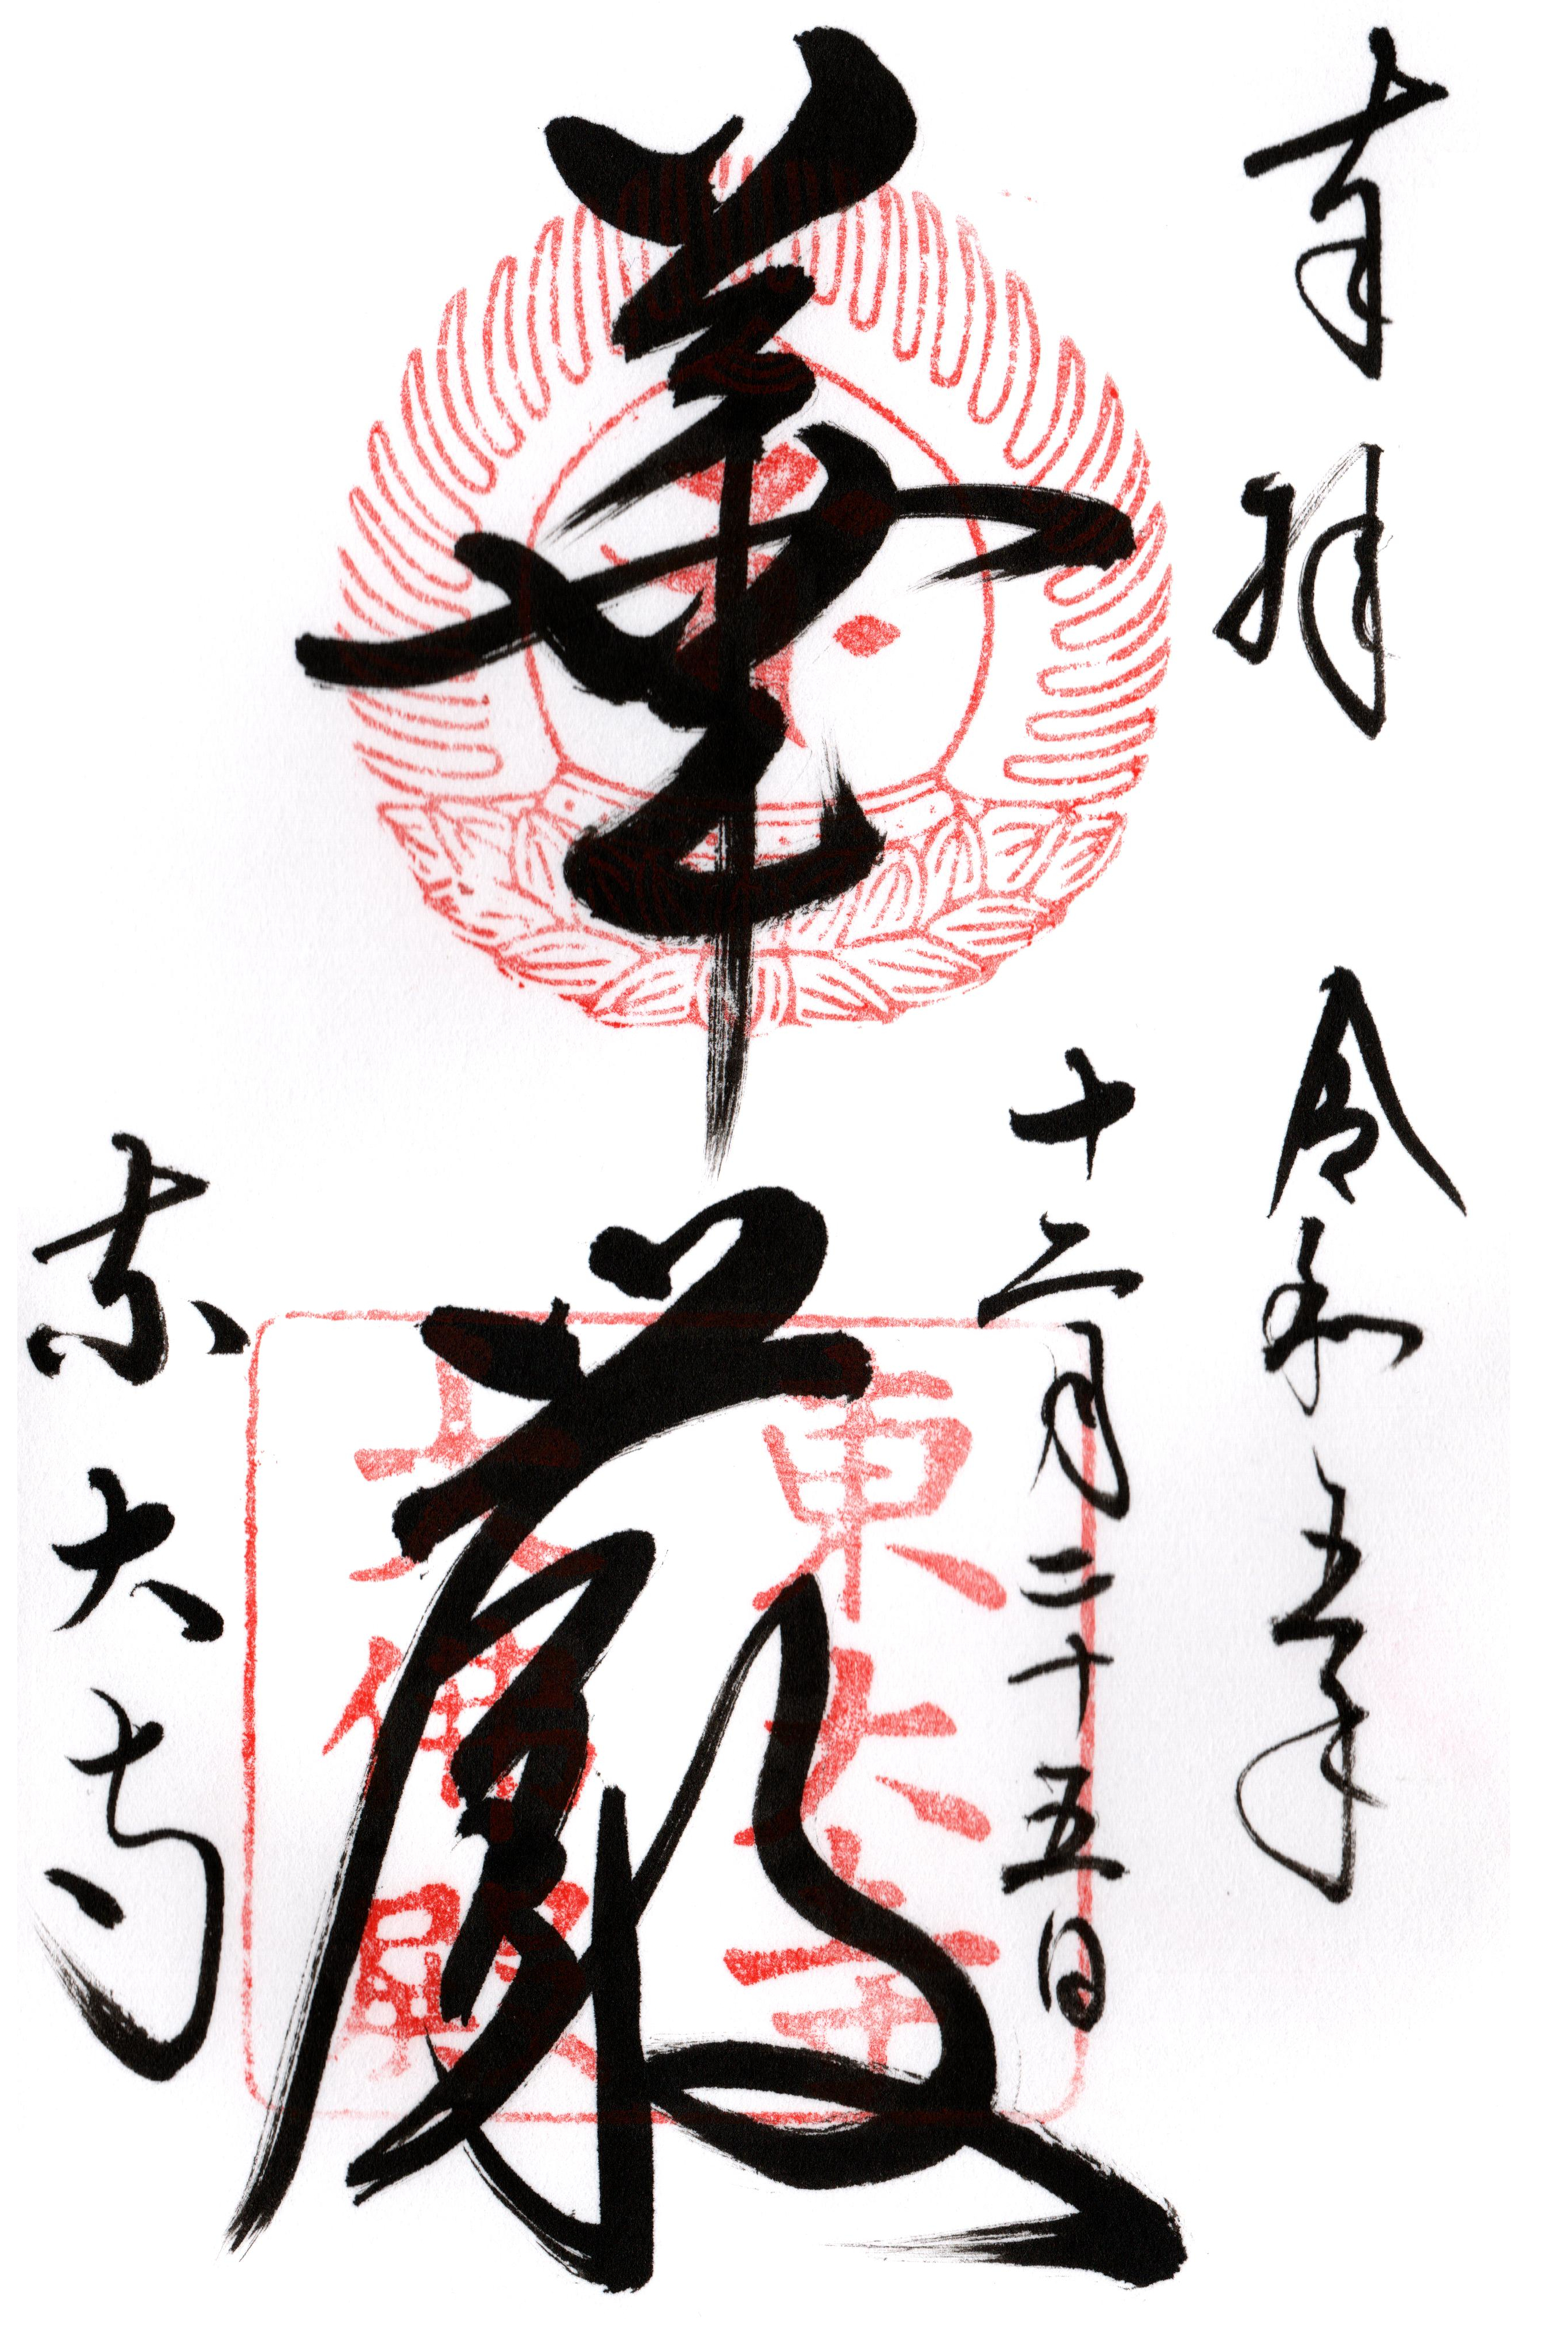 奉拝 令和五年
十二月二十五日
華厳
東大寺
東大寺
大佛殿